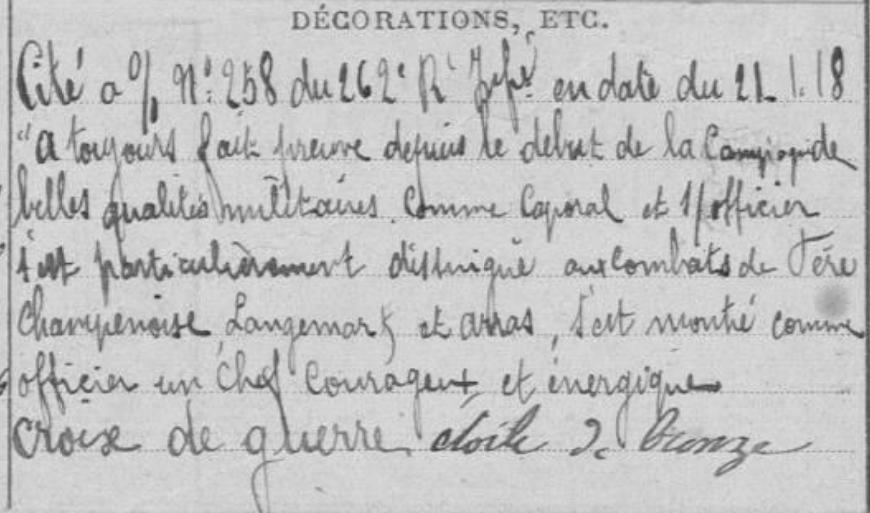 DÉCORATIONS, ETC.
Cité à o/ N°: 258 du 262e Rt Infie en date du 21.1.18
"A toujours fait preuve depuis le début de la Campagne de
belles qualités militaires comme Caporal et S/officier
s'est particulièrement distingué aux combats de Fère
Champenoise, Langemark et Arras, s'est montré comme
officier un Chef Courageux et énergique
Croix de guerre étoile de bronze